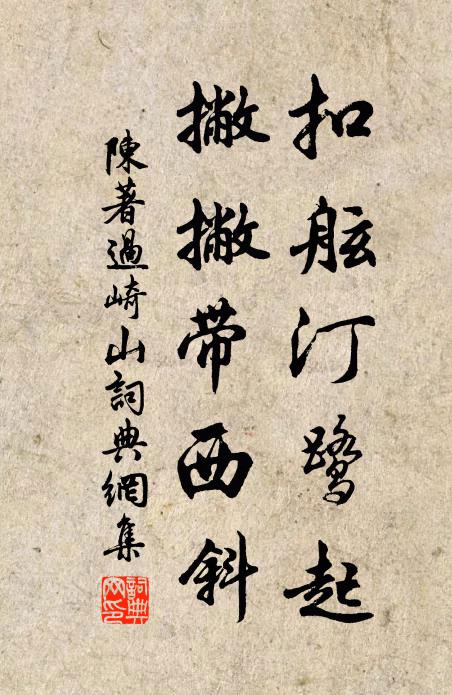 扣舷汀鹭起
撇撇带西斜
陳著過崎山詞典網集
詞典